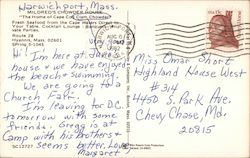 Harwichport, Mass.
MILDRED'S CHOWDER HOUSE
"The Home of Cape Cod Clam Chowder"
Fresh Seafood from the Cape Waters
Your Table. Cocktail Lounge
vate Parties.
Route 28
Hyannis, Mass. 02601
SPring 5-1045
Hi! I'm here at
house & we have enjoyed
the beach & swimming.
We are going to a
Church Fair.
I'm leaving for D.C.
tomorrow with some
friends. Gregg is at
Camp with his brothers &
seems better. Love
Margaret
Miss Omar Short
Highland House West
#314
4450 S. Park Ave.
Chevy Chase, Md.
20815